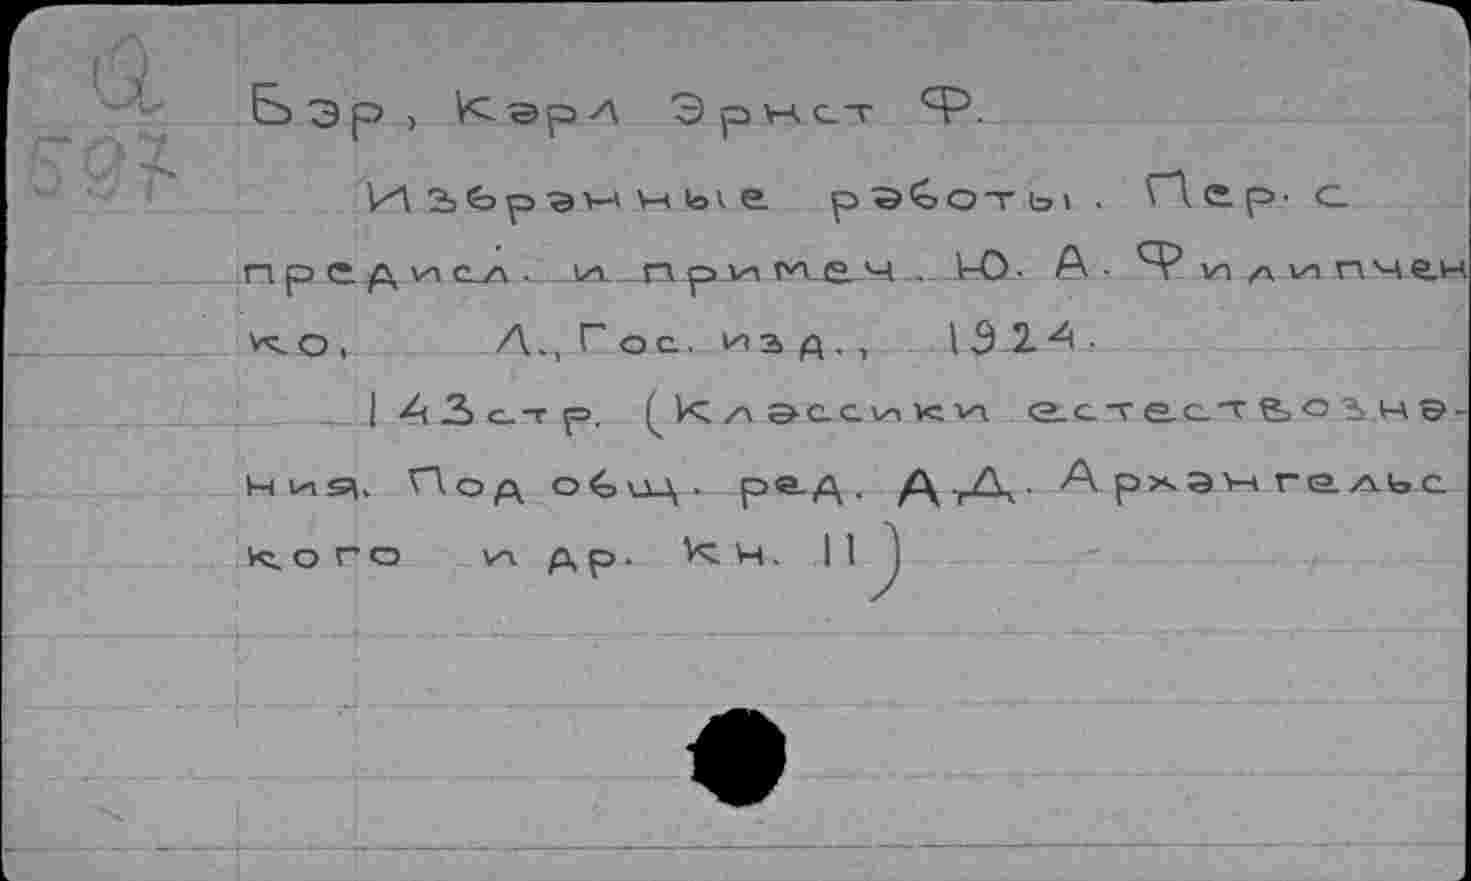 Q
597
Бэр, Карл Эрнст Ф.
Избранные работы. Пер. с
предисл. и примеч. Ю. А. Филипчен
ко, Л., Гос. изд., 1924.
143 стр. (Классики естествозна-
ния. Под общ. ред. Д.Д. Архангельс
кого и др. Кн. 11)